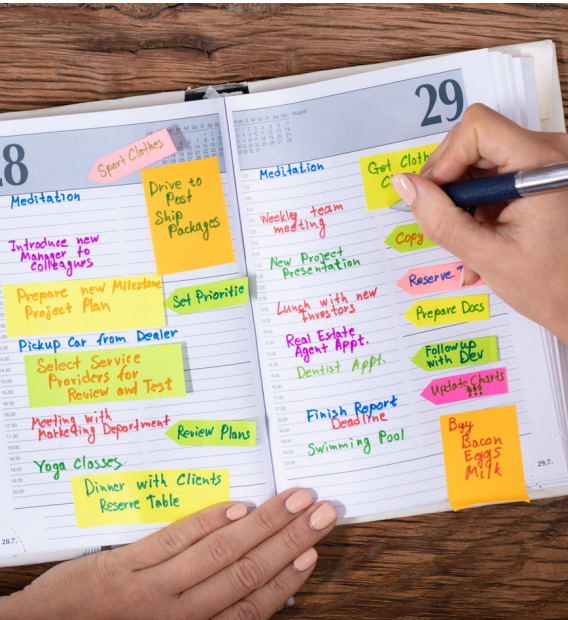 8
Sport Clothes
Meditation
Drive to
Post
Ship
Packages
Introduce new
Manager to
Colleagues
Prepare new Milestone
Project Plan
Set Prioritie
Pickup Car from Dealer
Select Service
Providers for
Review and Test
Meeting with
Marketing Department
Review Plans
Yoga Classes
Dinner with Clients
Reserve Table
28.7.
29
August
Meditation
Get Cloth
Weekly team
meeting
Copy
New Project
Presentation
Reserve
Lunch with new
Investors
Prepare Docs
Real Estate
Agent Appt.
Follow up
with Dev
Dentist Appt.
Update Charts
!!!
Finish Report
Deadline
Buy
Bacon
Eggs
Milk
Swimming Pool
29.7.